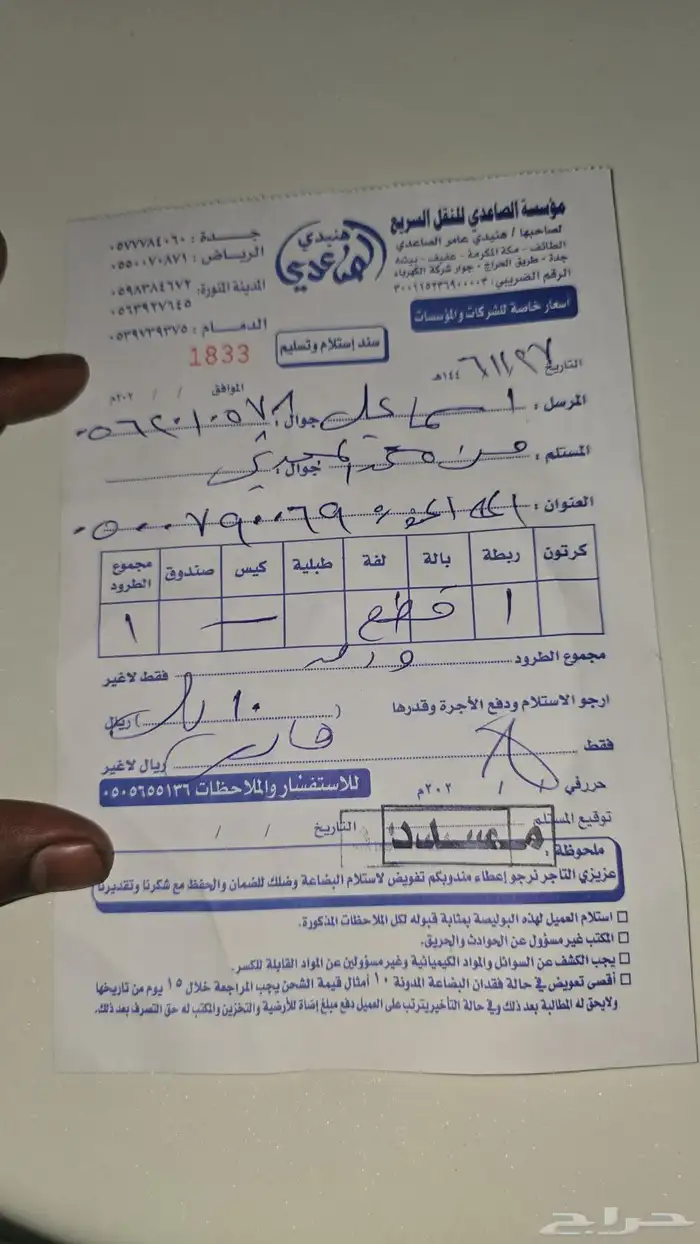 مؤسسة الصاعدي للنقل السريع
لصاحبها / هنيدي عامر الصاعدي
الطائف - مكة المكرمة - عفيف - بيشه
جدة - طريق الحراج - جوار شركة الكهرباء
الرقم الضريبي: ٣٠٠١١٥٢٣٦٩٠٠٠٠٣
أسعار خاصة للشركات والمؤسسات
هنيدي
الصاعدي
سند إستلام وتسليم
جدة : ٠٥٧٧٧٨٤٠٦٠
الرياض : ٠٥٥٠٠٧٠٨٧١
المدينة المنورة: ٠٥٩٨٣٨٤٦٧٢
٠٥٦٣٩٢٧٦٤٥
الدمام : ٠٥٣٩٧٣٩٣٧٥
1833
التاريخ ١٤٤هـ الموافق / / ٢٠٢م
المرسل : اسماعيل جوال:
المستلم : جوال:
العنوان : ٠٥٠٠٧٩٠٠٦٩
كرتون ربطة بالة لفة طبلية كيس صندوق مجموع الطرود
١ قطع ١
مجموع الطرود واحد فقط لاغير
ارجو الاستلام ودفع الأجرة وقدرها ( ١٠ ) ريال
فقط ريال لاغير
حرر في / / ٢٠٢م
للاستفسار والملاحظات ٠٥٠٥٦٥٥١٣٦
توقيع المستلم التاريخ / /
ملحوظة :
عزيزي التاجر نرجو إعطاء مندوبكم تفويض لاستلام البضاعة وضلك للضمان والحفظ مع شكرنا وتقديرنا
استلام العميل لهذه البوليصة بمثابة قبوله لكل الملاحظات المذكورة.
المكتب غير مسؤول عن الحوادث والحريق.
يجب الكشف عن السوائل والمواد الكيميائية وغير مسؤولين عن المواد القابلة للكسر.
أقصى تعويض في حالة فقدان البضاعة المدونة ١٠ أمثال قيمة الشحن يجب المراجعة خلال ١٥ يوم من تاريخها
ولايحق له المطالبة بعد ذلك وفي حالة التأخير يترتب على العميل دفع مبلغ إضافة للأرضية والتخزين والمكتب له حق التصرف بعد ذلك.
حراج